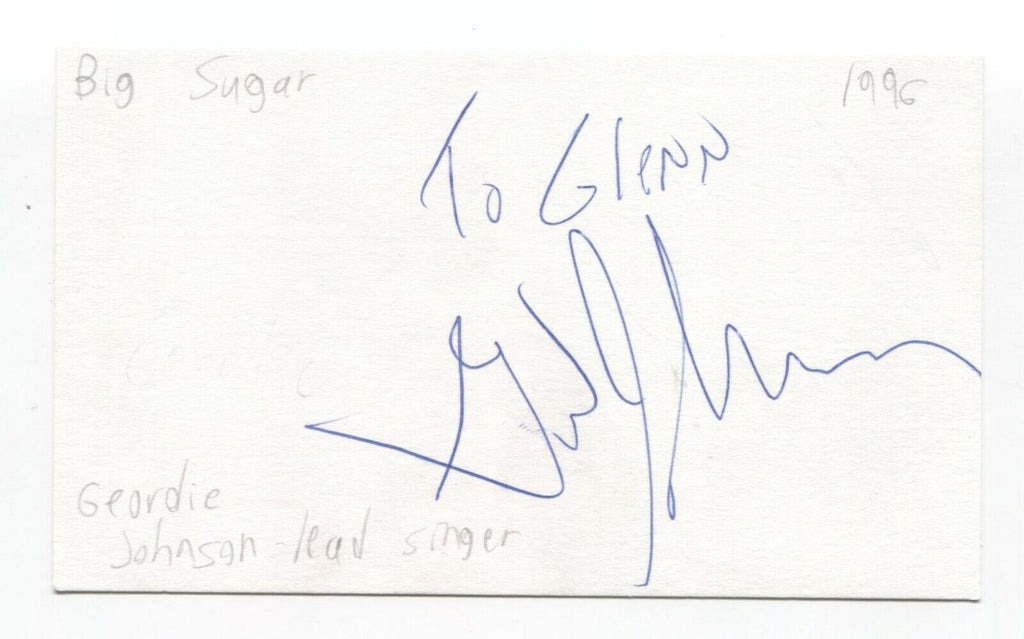 Big Sugar 1996
To Glenn
Geordie
Johnson - lead singer